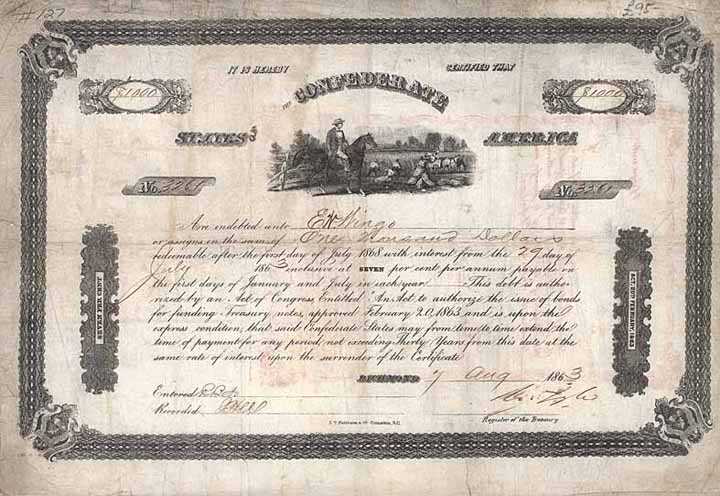 #127
£95-
IT IS HEREBY CERTIFIED THAT
THE CONFEDERATE
$1000 $1000
STATES OF AMERICA
No. 3261 No. 3261
Are indebted unto E W Wingo
or assigns in the sum of One Thousand Dollars
redeemable after the first day of July 1868 with interest from the 29 day of
July 1863 inclusive at SEVEN per cent per annum payable on
the first days of January and July in each year. This debt is autho-
rized by an Act of Congress Entitled "An Act to authorize the issue of bonds
for funding Treasury notes, approved February 20, 1863 and is upon the
express condition, that said Confederate States may from time to time extend the
time of payment for any period, not exceeding Thirty Years from this date at the
same rate of interest upon the surrender of the Certificate.
SEVEN PER CENT
ACT, 20TH FEBRUARY, 1863
RICHMOND 7 Aug 1863
Entered
Recorded
Register of the Treasury